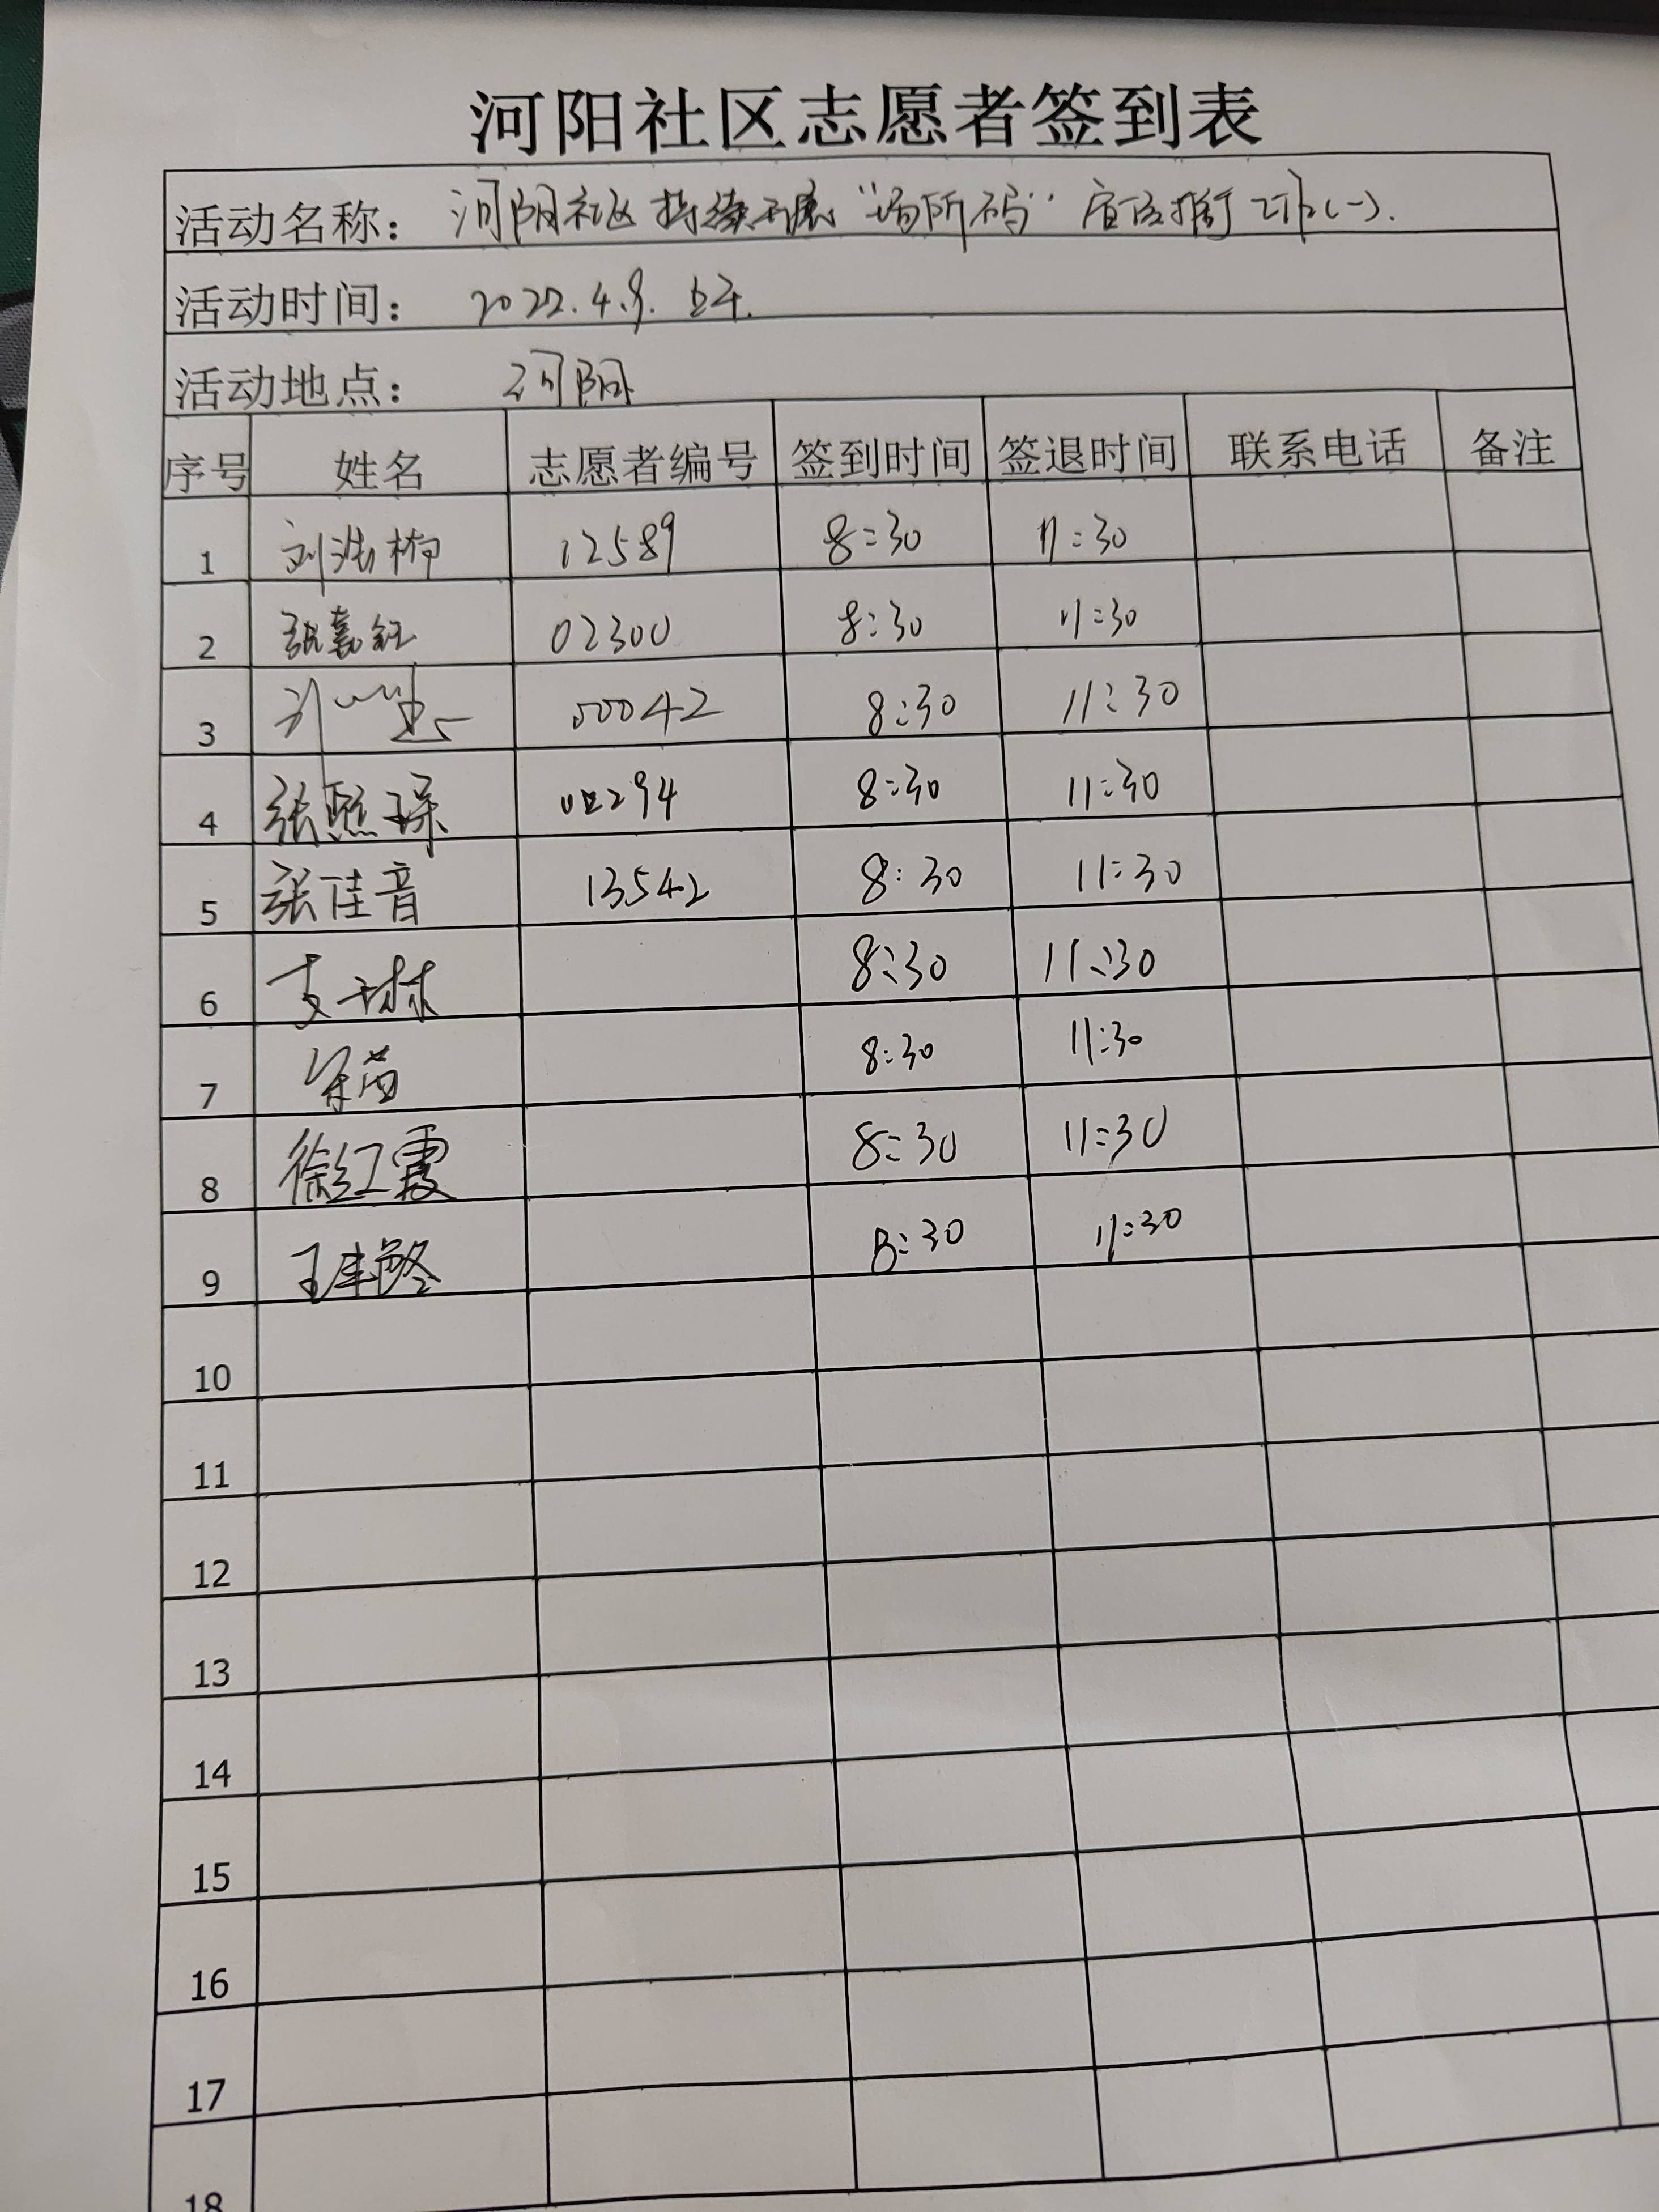 河阳社区志愿者签到表
活动名称: 河阳社区持续开展“场所码”宣传推广工作(一).
活动时间: 2022.4.9. 上午.
活动地点: 河阳
序号 姓名 志愿者编号 签到时间 签退时间 联系电话 备注
1 12589 8:30 11:30
2 张嘉钰 02300 8:30 11:30
3 00042 8:30 11:30
4 张熙琛 02294 8:30 11:30
5 张佳音 13542 8:30 11:30
6 支琳 8:30 11:30
7 8:30 11:30
8 徐红霞 8:30 11:30
9 8:30 11:30
10
11
12
13
14
15
16
17
18